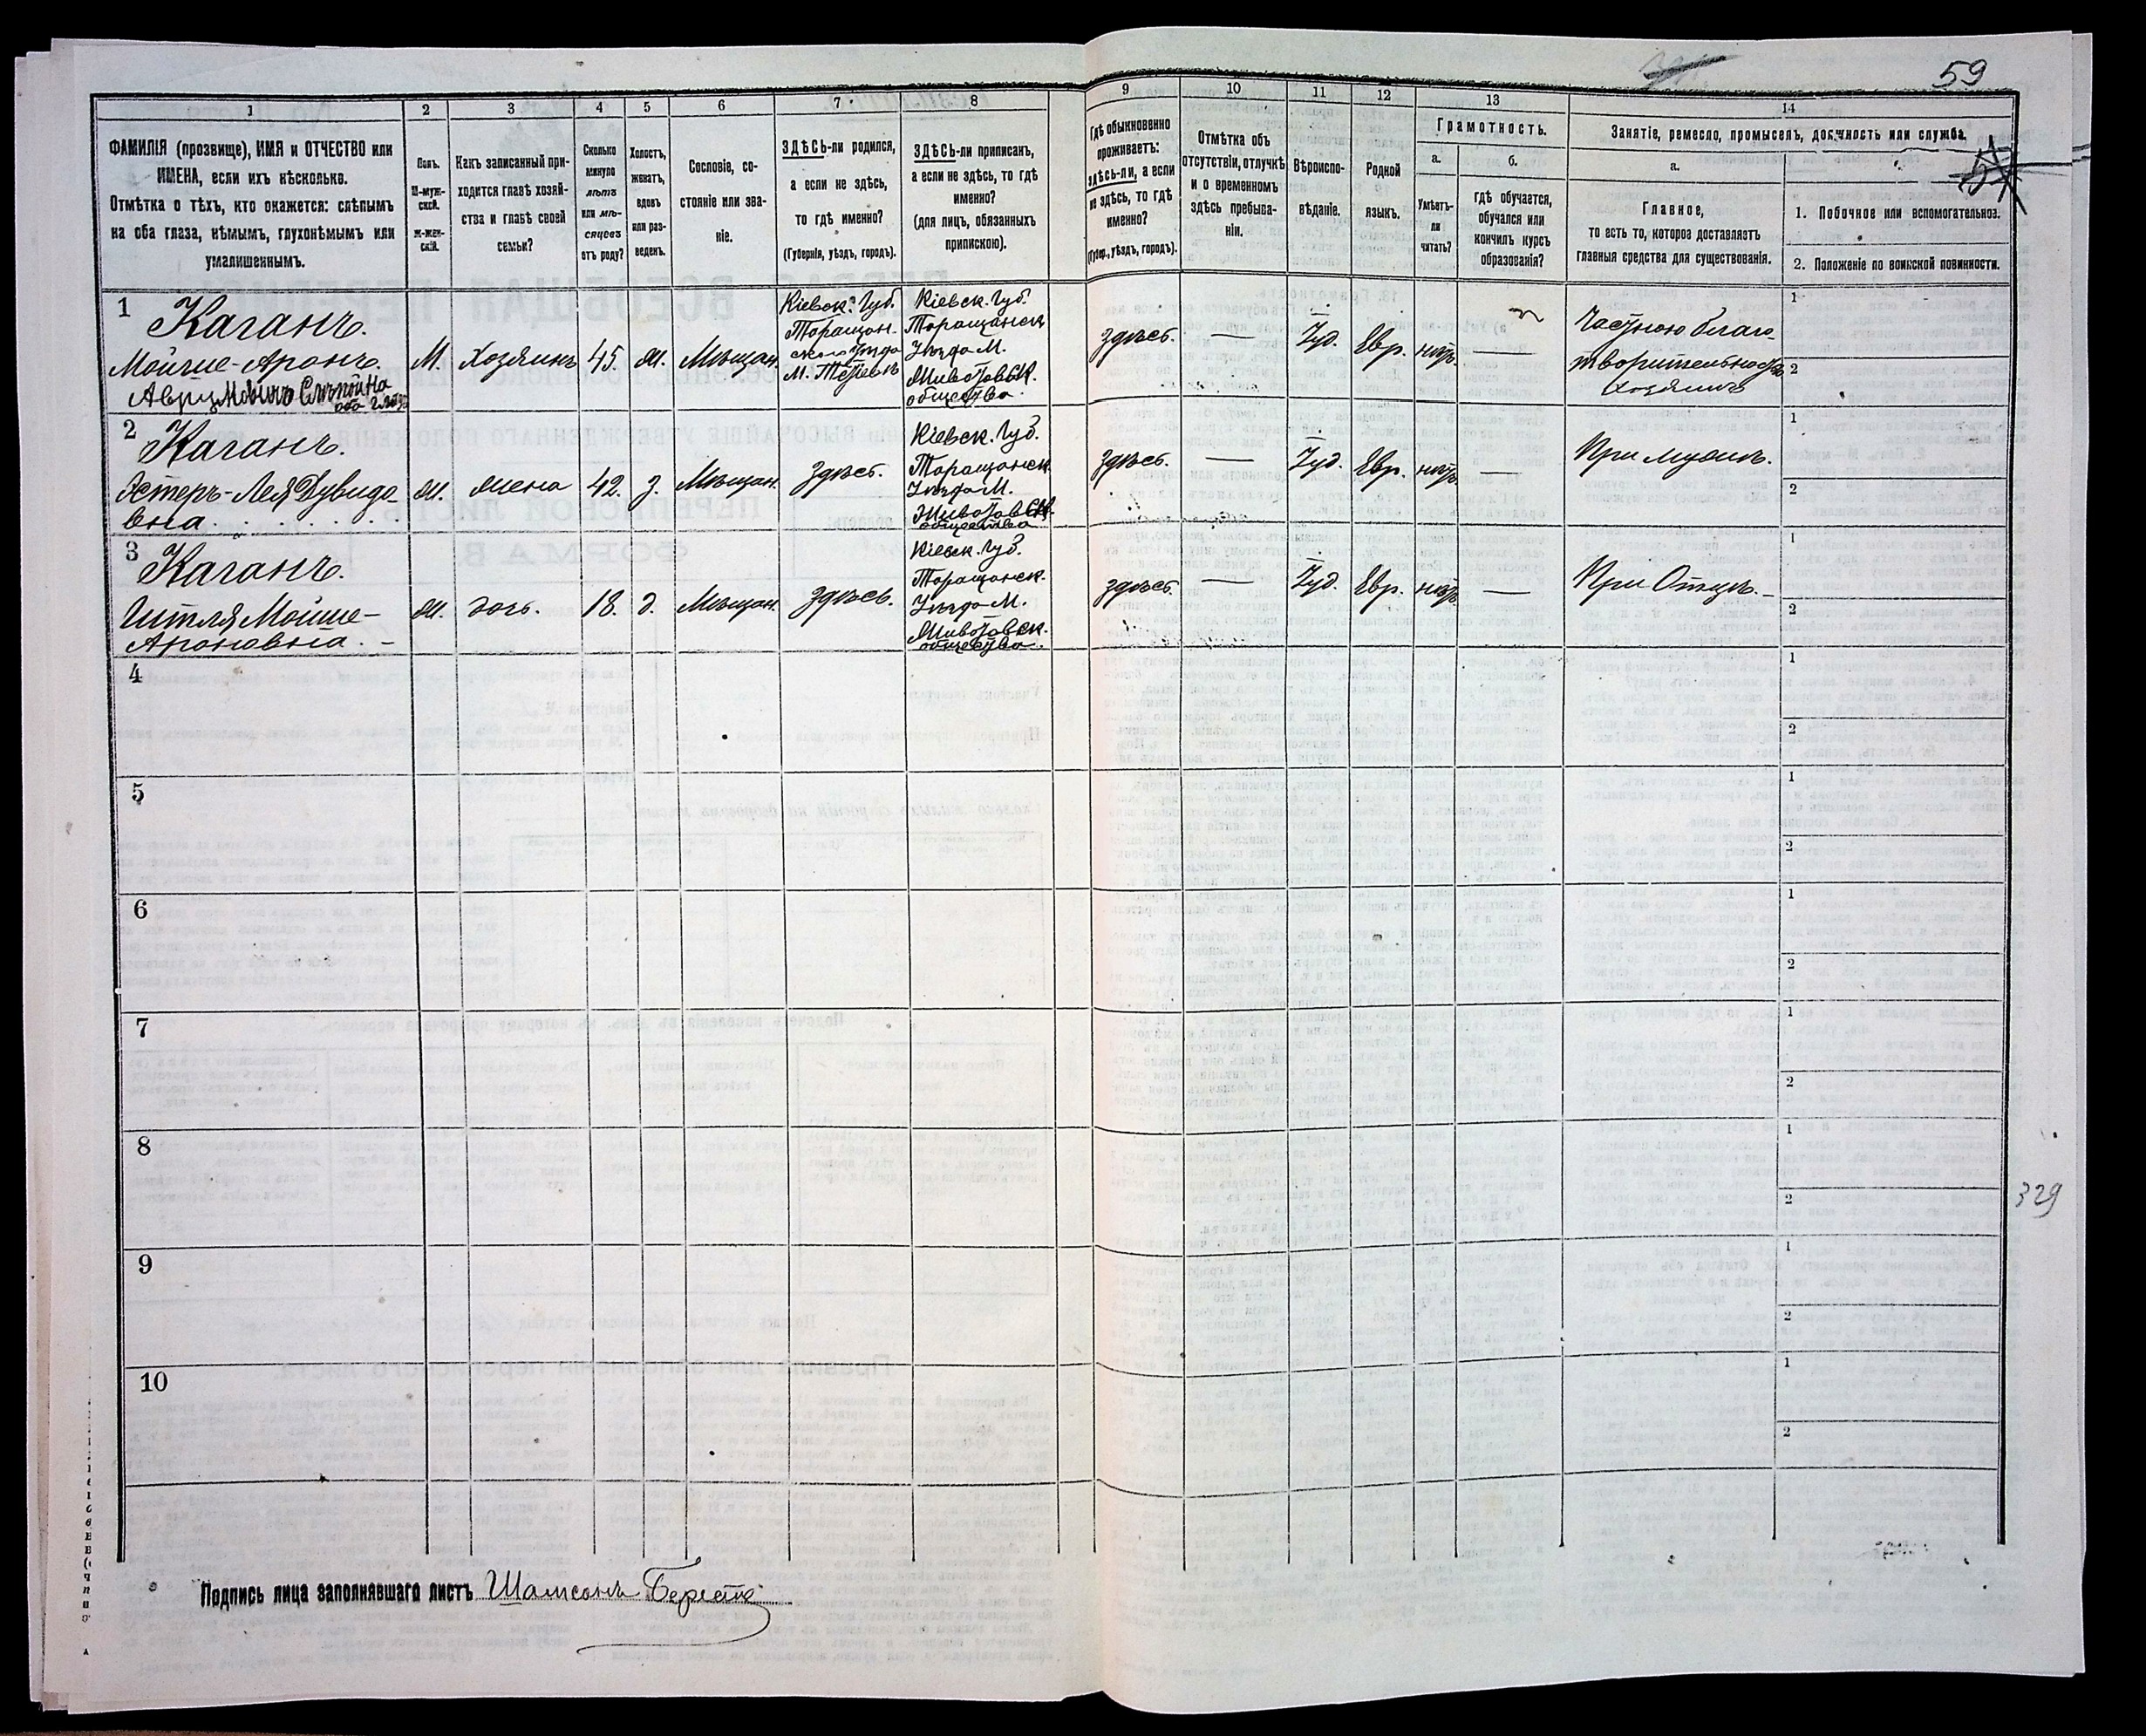 59
1
2
3
4
5
6
7
8
9
10
11
12
13
14
ФАМИЛІЯ (прозвище), ИМЯ и ОТЧЕСТВО или
ИМЕНА, если ихъ нѣсколько.
Отмѣтка о тѣхъ, кто окажется: слѣпымъ
на оба глаза, нѣмымъ, глухонѣмымъ или
умалишеннымъ.
Полъ.
М-муж-
ской.
Ж-жен-
скій.
Какъ записанный при-
ходится главѣ хозяй-
ства и главѣ своей
семьи?
Сколько
минуло
лѣтъ
или мѣ-
сяцевъ
отъ роду?
Холостъ,
женатъ,
вдовъ
или раз-
веденъ.
Сословіе, со-
стояніе или зва-
ніе.
ЗДѢСЬ-ли родился,
а если не здѣсь,
то гдѣ именно?
(Губернія, уѣздъ, городъ).
ЗДѢСЬ-ли приписанъ,
а если не здѣсь, то гдѣ
именно?
(для лицъ, обязанныхъ
припискою).
Гдѣ обыкновенно
проживаетъ:
здѣсь-ли, а если
не здѣсь, то гдѣ
именно?
(Губер., уѣздъ, городъ).
Отмѣтка объ
отсутствіи, отлучкѣ
и о временномъ
здѣсь пребыва-
ніи.
Вѣроиспо-
вѣданіе.
Родной
языкъ.
Грамотность.
а.
Умѣетъ-
ли
читать?
б.
гдѣ обучается,
обучался или
кончилъ курсъ
образованія?
Занятіе, ремесло, промыселъ, должность или служба.
а.
Главное,
то есть то, которое доставляетъ
главныя средства для существованія.
1. Побочное или вспомогательное.
2. Положеніе по воинской повинности.
1
Каганъ.
Мойше-Аронъ
Аврумовичъ Слѣпой на
оба глаза
М.
Хозяинъ
45.
ж.
Мѣщан.
Кіевск. Губ.
Таращан.
ского Уѣзда
Кіевск. Губ.
Таращанск.
Уѣзда М.
Животовск.
общества.
здѣсь.
—
Іуд.
Евр.
нѣтъ
—
Частною благо-
творительностью
Хозяинъ
1
2
2
Каганъ.
Эстеръ-Лея Дувидо
вна.
ж.
жена
42.
з.
Мѣщан.
Здѣсь.
Кіевск. Губ.
Таращанск.
Уѣзда М.
Животовск.
общества
здѣсь.
—
Іуд.
Евр.
нѣтъ
—
При мужѣ.
1
2
3
Каганъ.
Гитля Мойше-
Ароновна. -
ж.
дочь.
18.
д.
Мѣщан.
Здѣсь.
Кіевск. Губ.
Таращанск.
Уѣзда М.
Животовск.
общества.
здѣсь
—
Іуд.
Евр.
нѣтъ
—
При Отцѣ. -
1
2
4
1
2
5
1
2
6
1
2
7
1
2
8
1
2
329
9
1
2
10
1
2
Подпись лица заполнявшаго листъ Шамсонъ